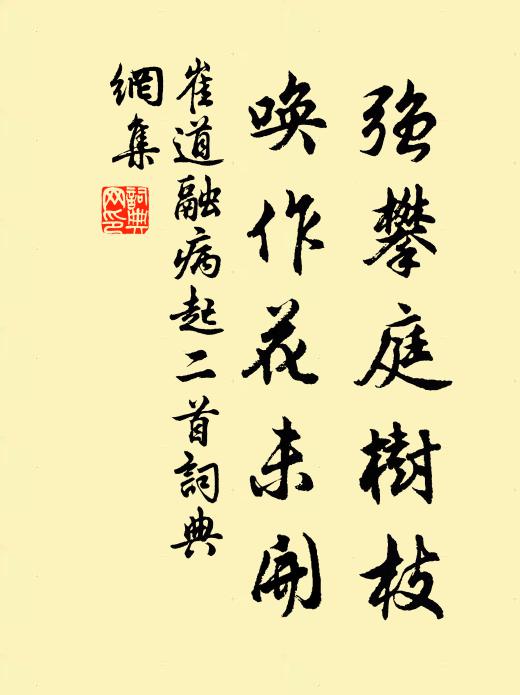 强攀庭樹枝
喚作花未開
崔道融病起二首詞典
網集
詞典網印